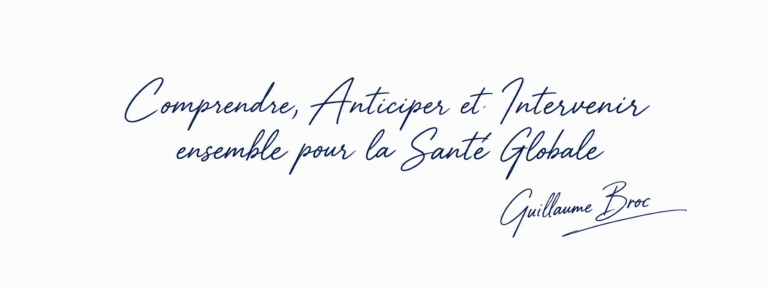 Comprendre, Anticiper et Intervenir
ensemble pour la Santé Globale
Guillaume Broc